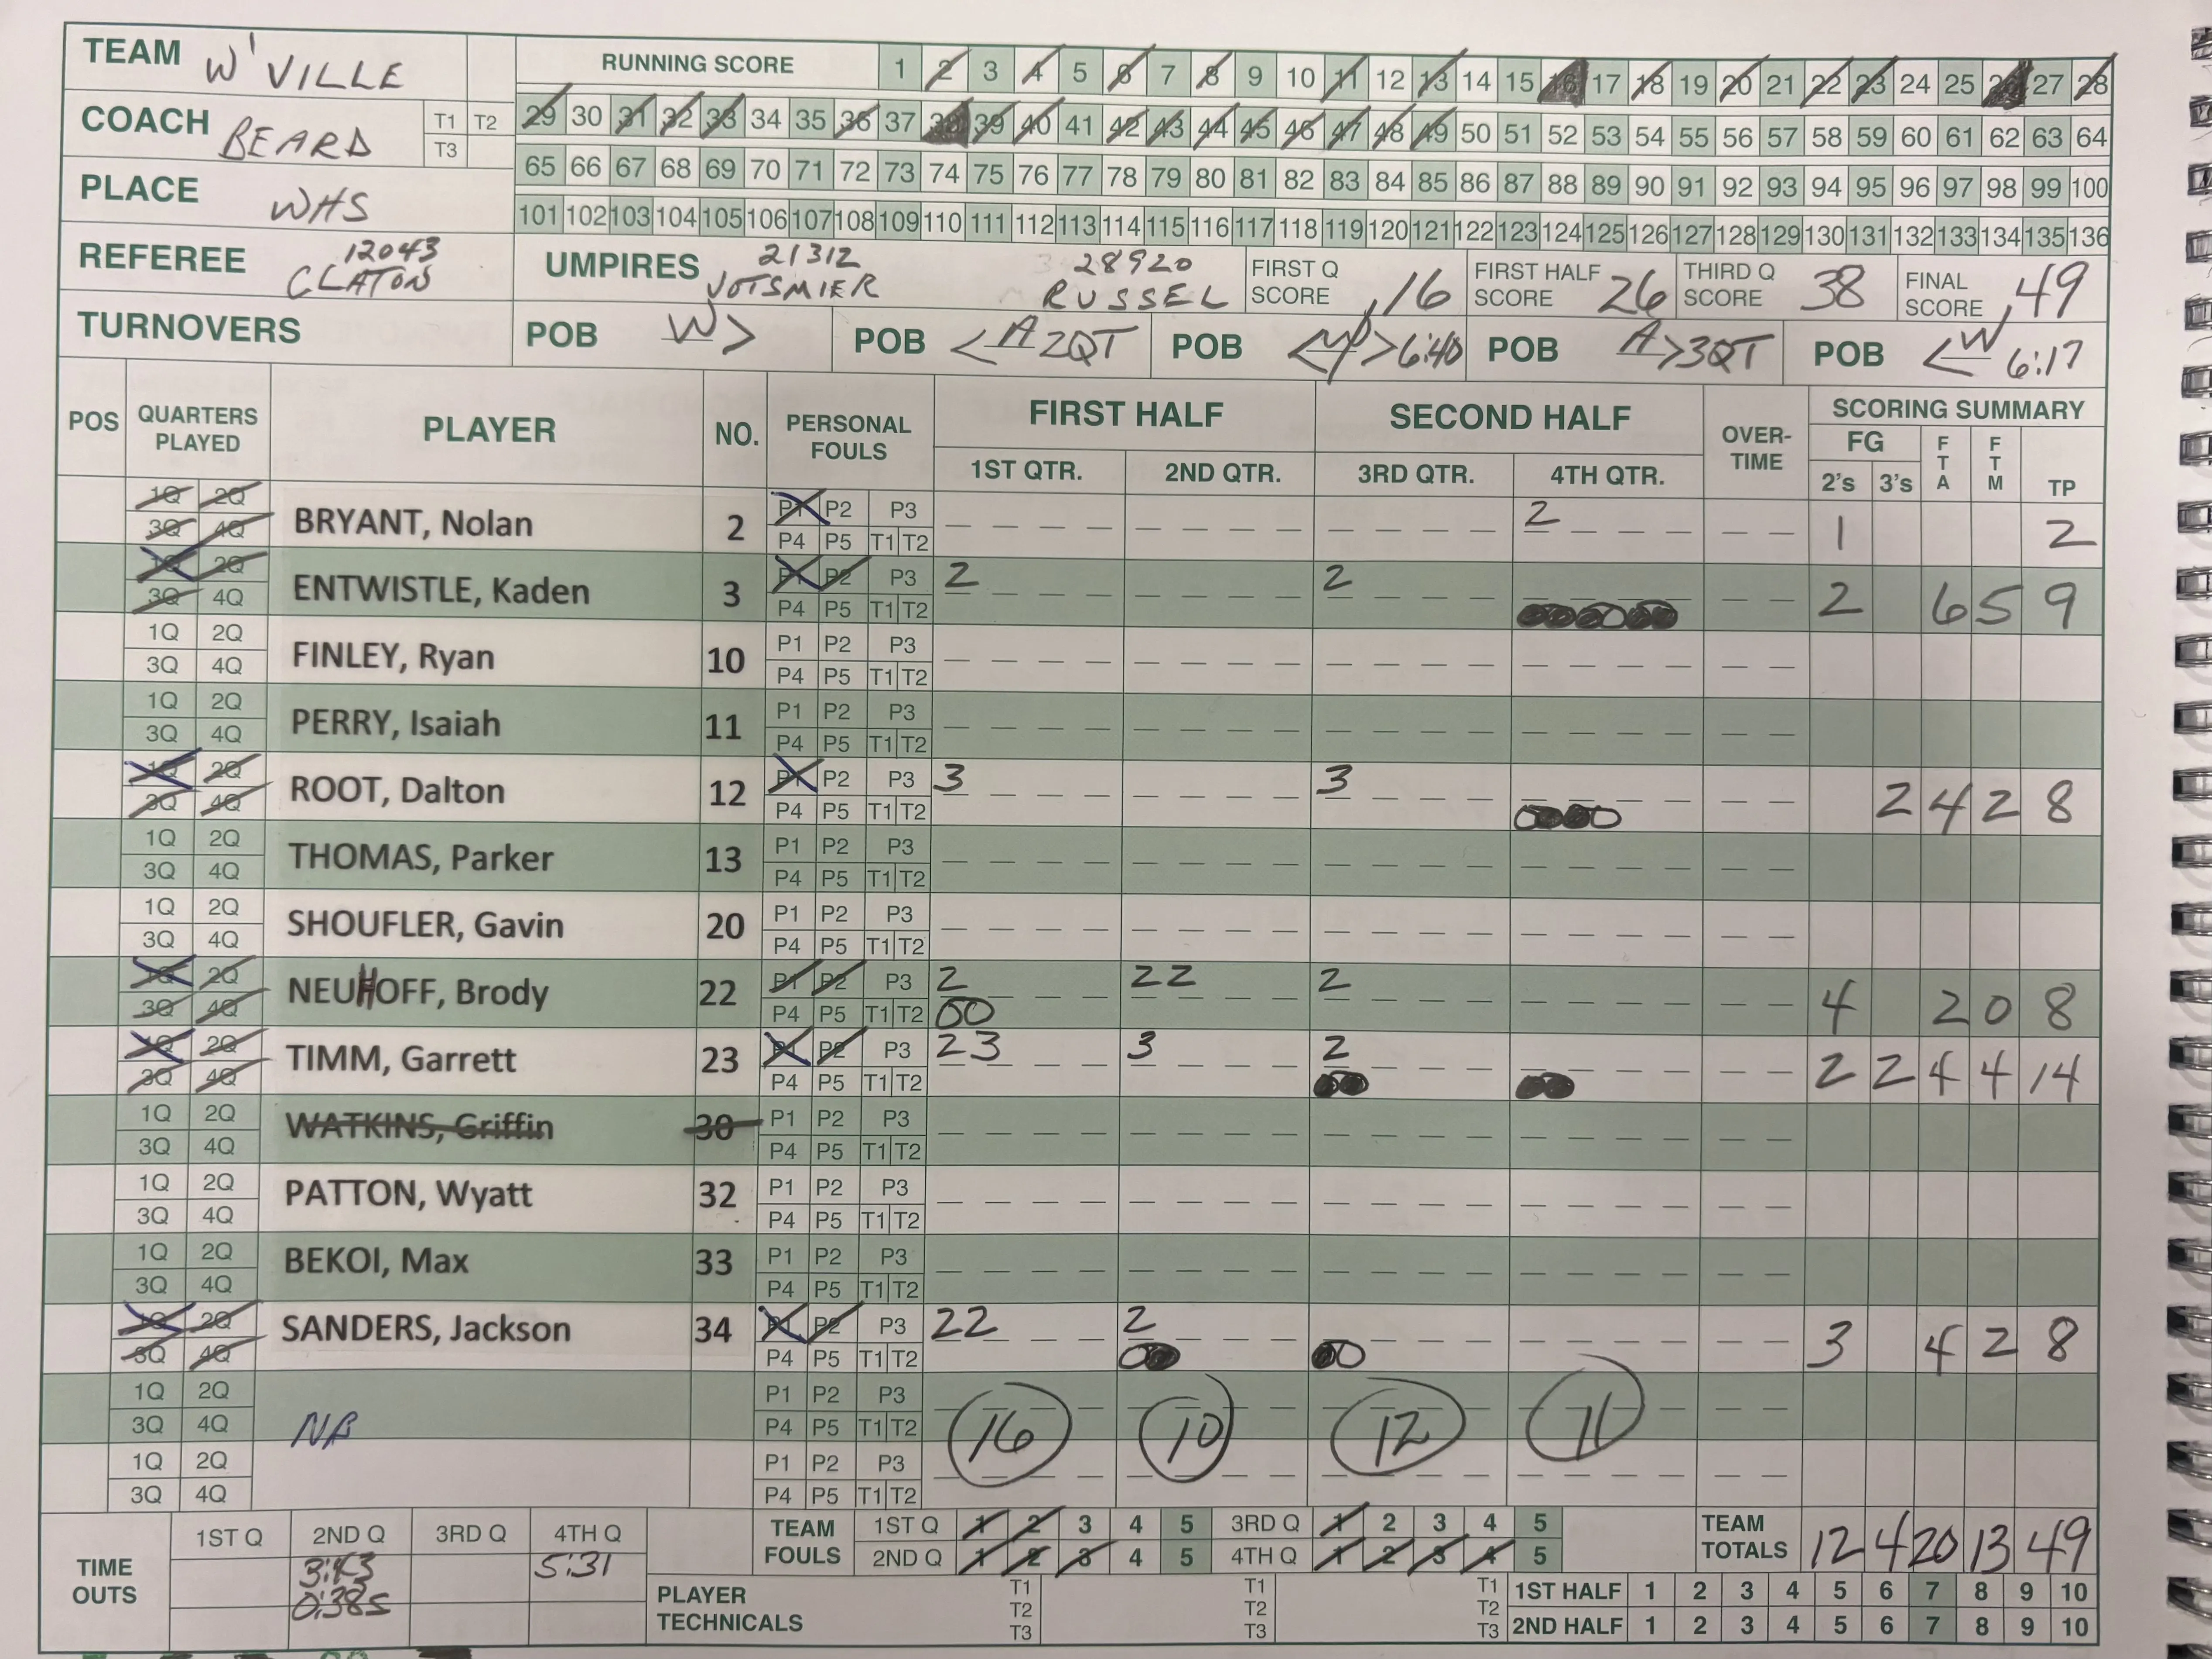 TEAM W'VILLE
RUNNING SCORE 1 2 3 4 5 6 7 8 9 10 11 12 13 14 15 16 17 18 19 20 21 22 23 24 25 26 27 28
COACH BEARD T1 T2 T3
29 30 31 32 33 34 35 36 37 38 39 40 41 42 43 44 45 46 47 48 49 50 51 52 53 54 55 56 57 58 59 60 61 62 63 64
65 66 67 68 69 70 71 72 73 74 75 76 77 78 79 80 81 82 83 84 85 86 87 88 89 90 91 92 93 94 95 96 97 98 99 100
PLACE WHS
101 102 103 104 105 106 107 108 109 110 111 112 113 114 115 116 117 118 119 120 121 122 123 124 125 126 127 128 129 130 131 132 133 134 135 136
REFEREE 12043 CLATON
UMPIRES 21312 VOTSMIER 28920 RUSSEL
FIRST Q SCORE 16 FIRST HALF SCORE 26 THIRD Q SCORE 38 FINAL SCORE 49
TURNOVERS POB W > POB < A 2QT POB 6:40 POB A > 3QT POB < W 6:17
POS QUARTERS PLAYED PLAYER NO. PERSONAL FOULS FIRST HALF SECOND HALF OVER-TIME SCORING SUMMARY
1ST QTR. 2ND QTR. 3RD QTR. 4TH QTR. FG 2's 3's FTA FTM TP
1Q 2Q P1 P2 P3
BRYANT, Nolan 2 2 1 2
3Q 4Q P4 P5 T1 T2
1Q 2Q P1 P2 P3
ENTWISTLE, Kaden 3 2 2 2 6 5 9
3Q 4Q P4 P5 T1 T2
1Q 2Q P1 P2 P3
FINLEY, Ryan 10
3Q 4Q P4 P5 T1 T2
1Q 2Q P1 P2 P3
PERRY, Isaiah 11
3Q 4Q P4 P5 T1 T2
1Q 2Q P1 P2 P3
ROOT, Dalton 12 3 3 2 4 2 8
3Q 4Q P4 P5 T1 T2
1Q 2Q P1 P2 P3
THOMAS, Parker 13
3Q 4Q P4 P5 T1 T2
1Q 2Q P1 P2 P3
SHOUFLER, Gavin 20
3Q 4Q P4 P5 T1 T2
1Q 2Q P1 P2 P3
NEUHOFF, Brody 22 2 22 2 4 2 0 8
3Q 4Q P4 P5 T1 T2 00
1Q 2Q P1 P2 P3
TIMM, Garrett 23 23 3 2 2 2 4 4 14
3Q 4Q P4 P5 T1 T2
1Q 2Q P1 P2 P3
WATKINS, Griffin 30
3Q 4Q P4 P5 T1 T2
1Q 2Q P1 P2 P3
PATTON, Wyatt 32
3Q 4Q P4 P5 T1 T2
1Q 2Q P1 P2 P3
BEKOI, Max 33
3Q 4Q P4 P5 T1 T2
1Q 2Q P1 P2 P3
SANDERS, Jackson 34 22 2 3 4 2 8
3Q 4Q P4 P5 T1 T2
1Q 2Q P1 P2 P3
3Q 4Q P4 P5 T1 T2 16 10 12 11
1Q 2Q P1 P2 P3
3Q 4Q P4 P5 T1 T2
TIME OUTS 1ST Q 2ND Q 3RD Q 4TH Q
3:43 5:31
0:38s
TEAM FOULS 1ST Q 1 2 3 4 5 3RD Q 1 2 3 4 5
2ND Q 1 2 3 4 5 4TH Q 1 2 3 4 5
TEAM TOTALS 12 4 20 13 49
PLAYER TECHNICALS T1 T2 T3 T1 T2 T3 T1 T2 T3
1ST HALF 1 2 3 4 5 6 7 8 9 10
2ND HALF 1 2 3 4 5 6 7 8 9 10